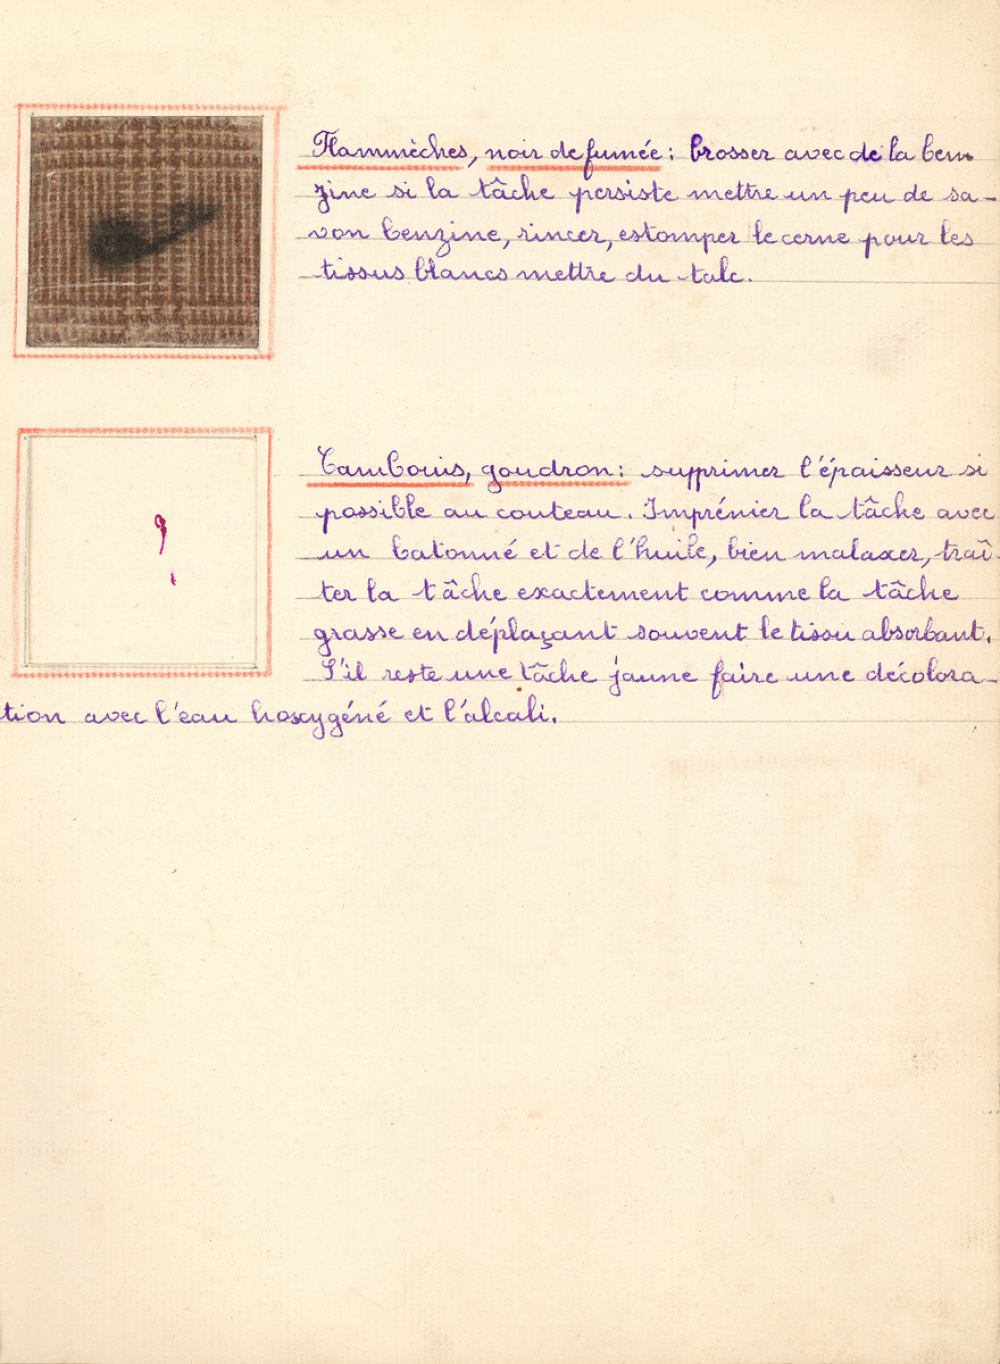 Flammèches, noir de fumée : brosser avec de la ben
zine si la tâche persiste mettre un peu de sa-
von benzine, rincer, estomper le cerne pour les
tissus blancs mettre du talc.
?
Cambouis, goudron : supprimer l'épaisseur si
possible au couteau. Imprénier la tâche avec
un batonné et de l'huile, bien malaxer, traî-
ter la tâche exactement comme la tâche
grasse en déplaçant souvent le tissu absorbant.
S'il reste une tâche jaune faire une décolora-
tion avec l'eau hoxygéné et l'alcali.